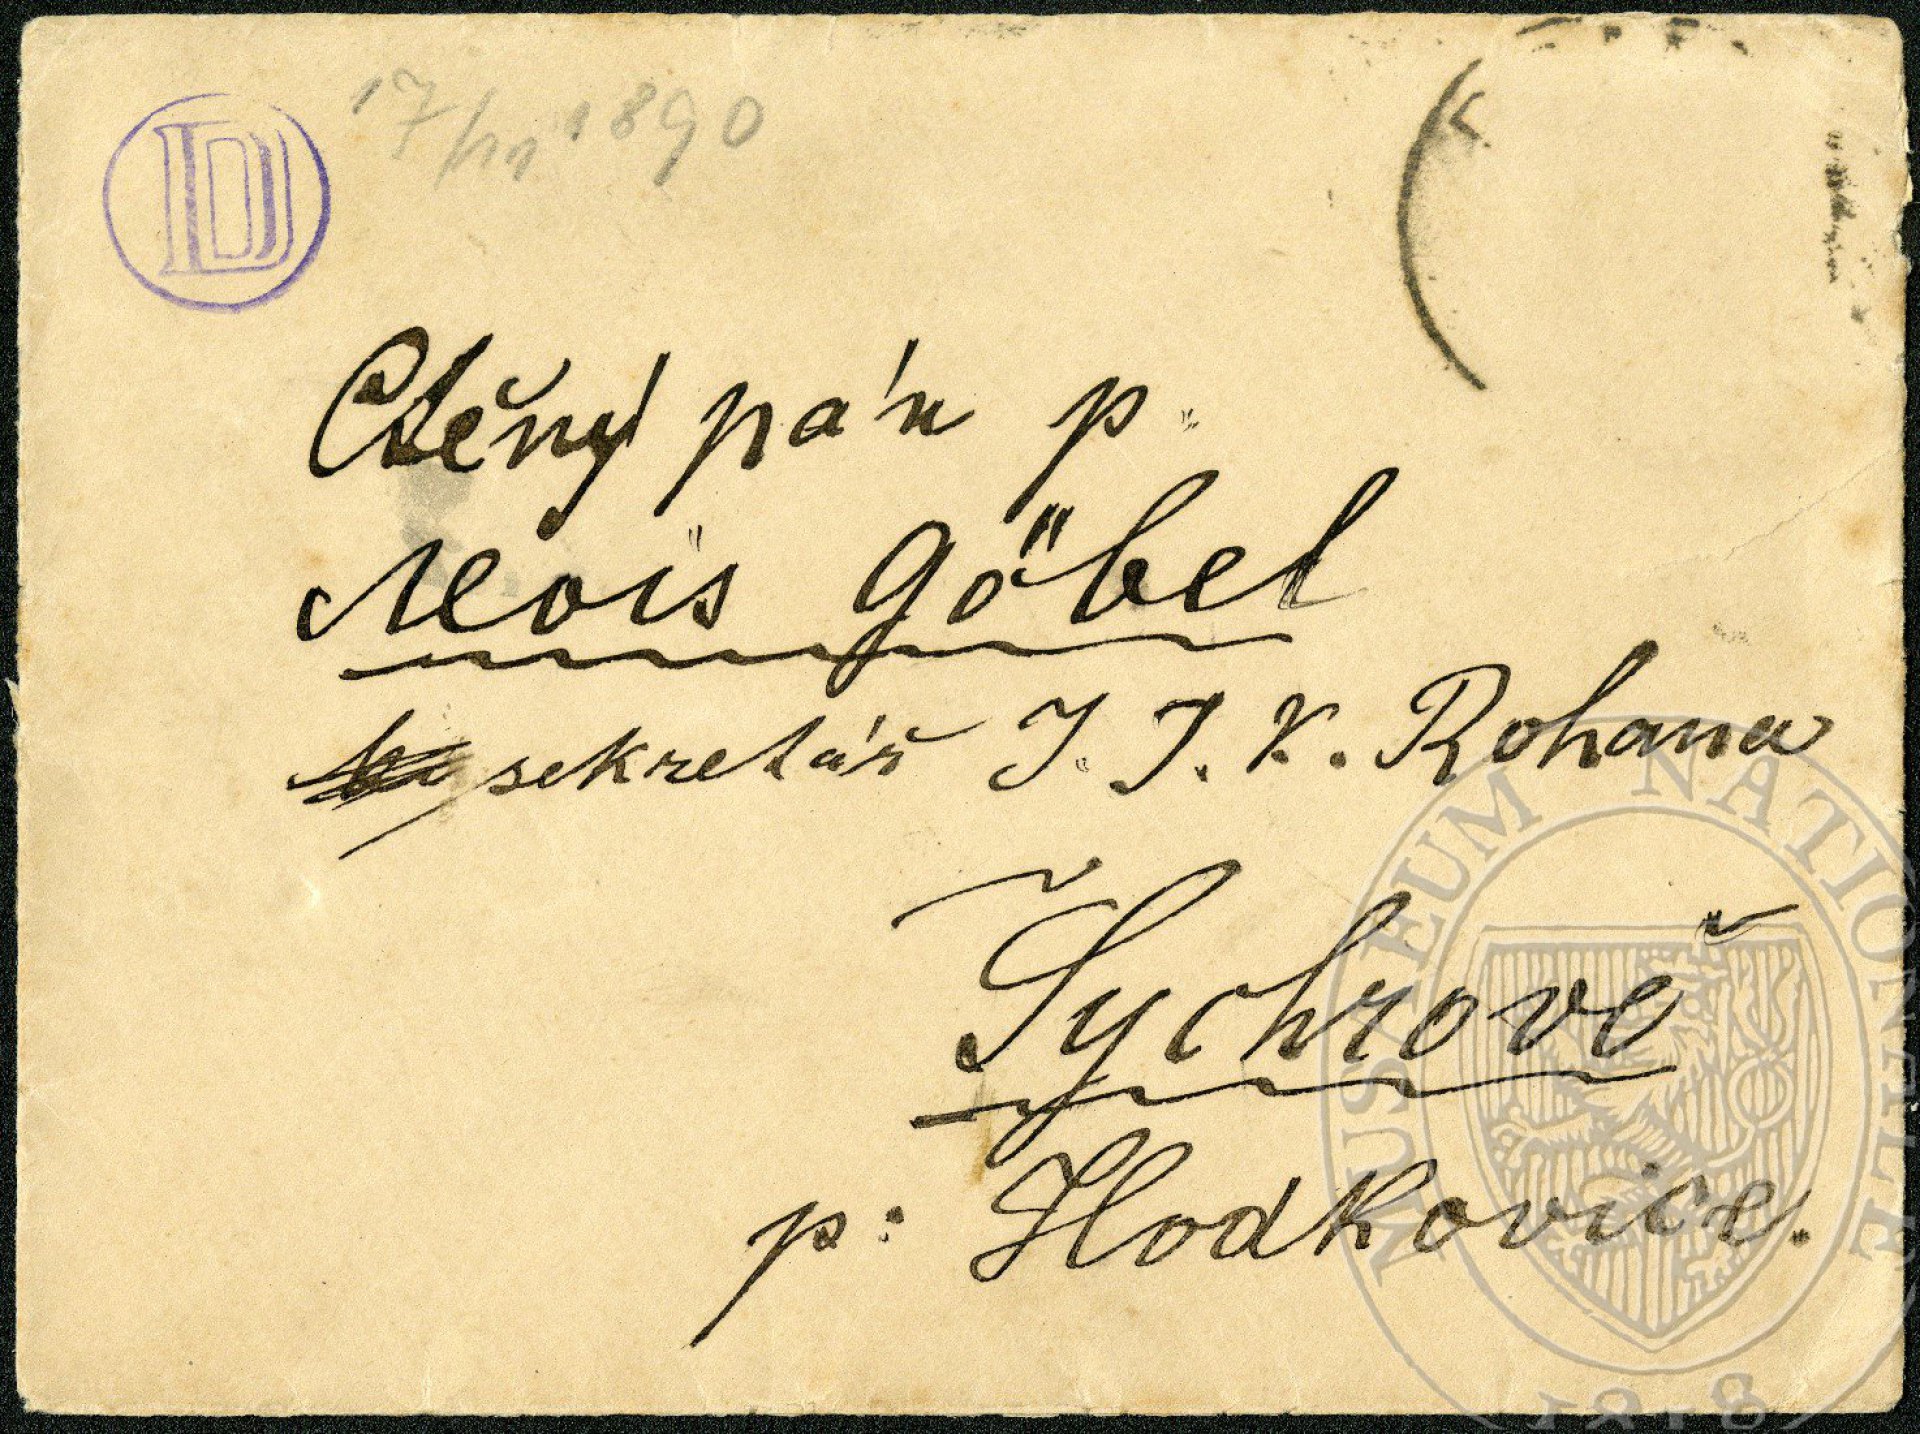 D
17/11 1890
Ctěný pán p.
Alois Göbel
sekretář J. J. K. Rohana
Sychrově
p: Hodkovice.
MUSEUM NATIONALE
1818